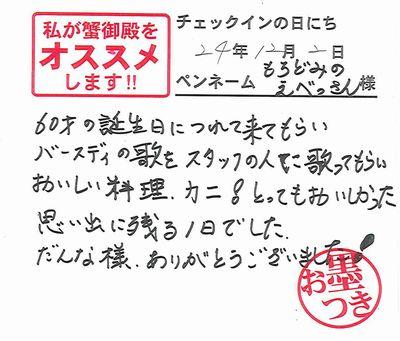 私が蟹御殿を
オススメ
します!!
チェックインの日にち
24年12月2日
ペンネーム もろどみの
えべっさん様
60才の誕生日につれて来てもらい
バースディの歌をスタッフの人に歌ってもらい
おいしい料理、カニ!とってもおいしかった
思い出に残る1日でした。
だんな様、ありがとうございました!
お墨
つき